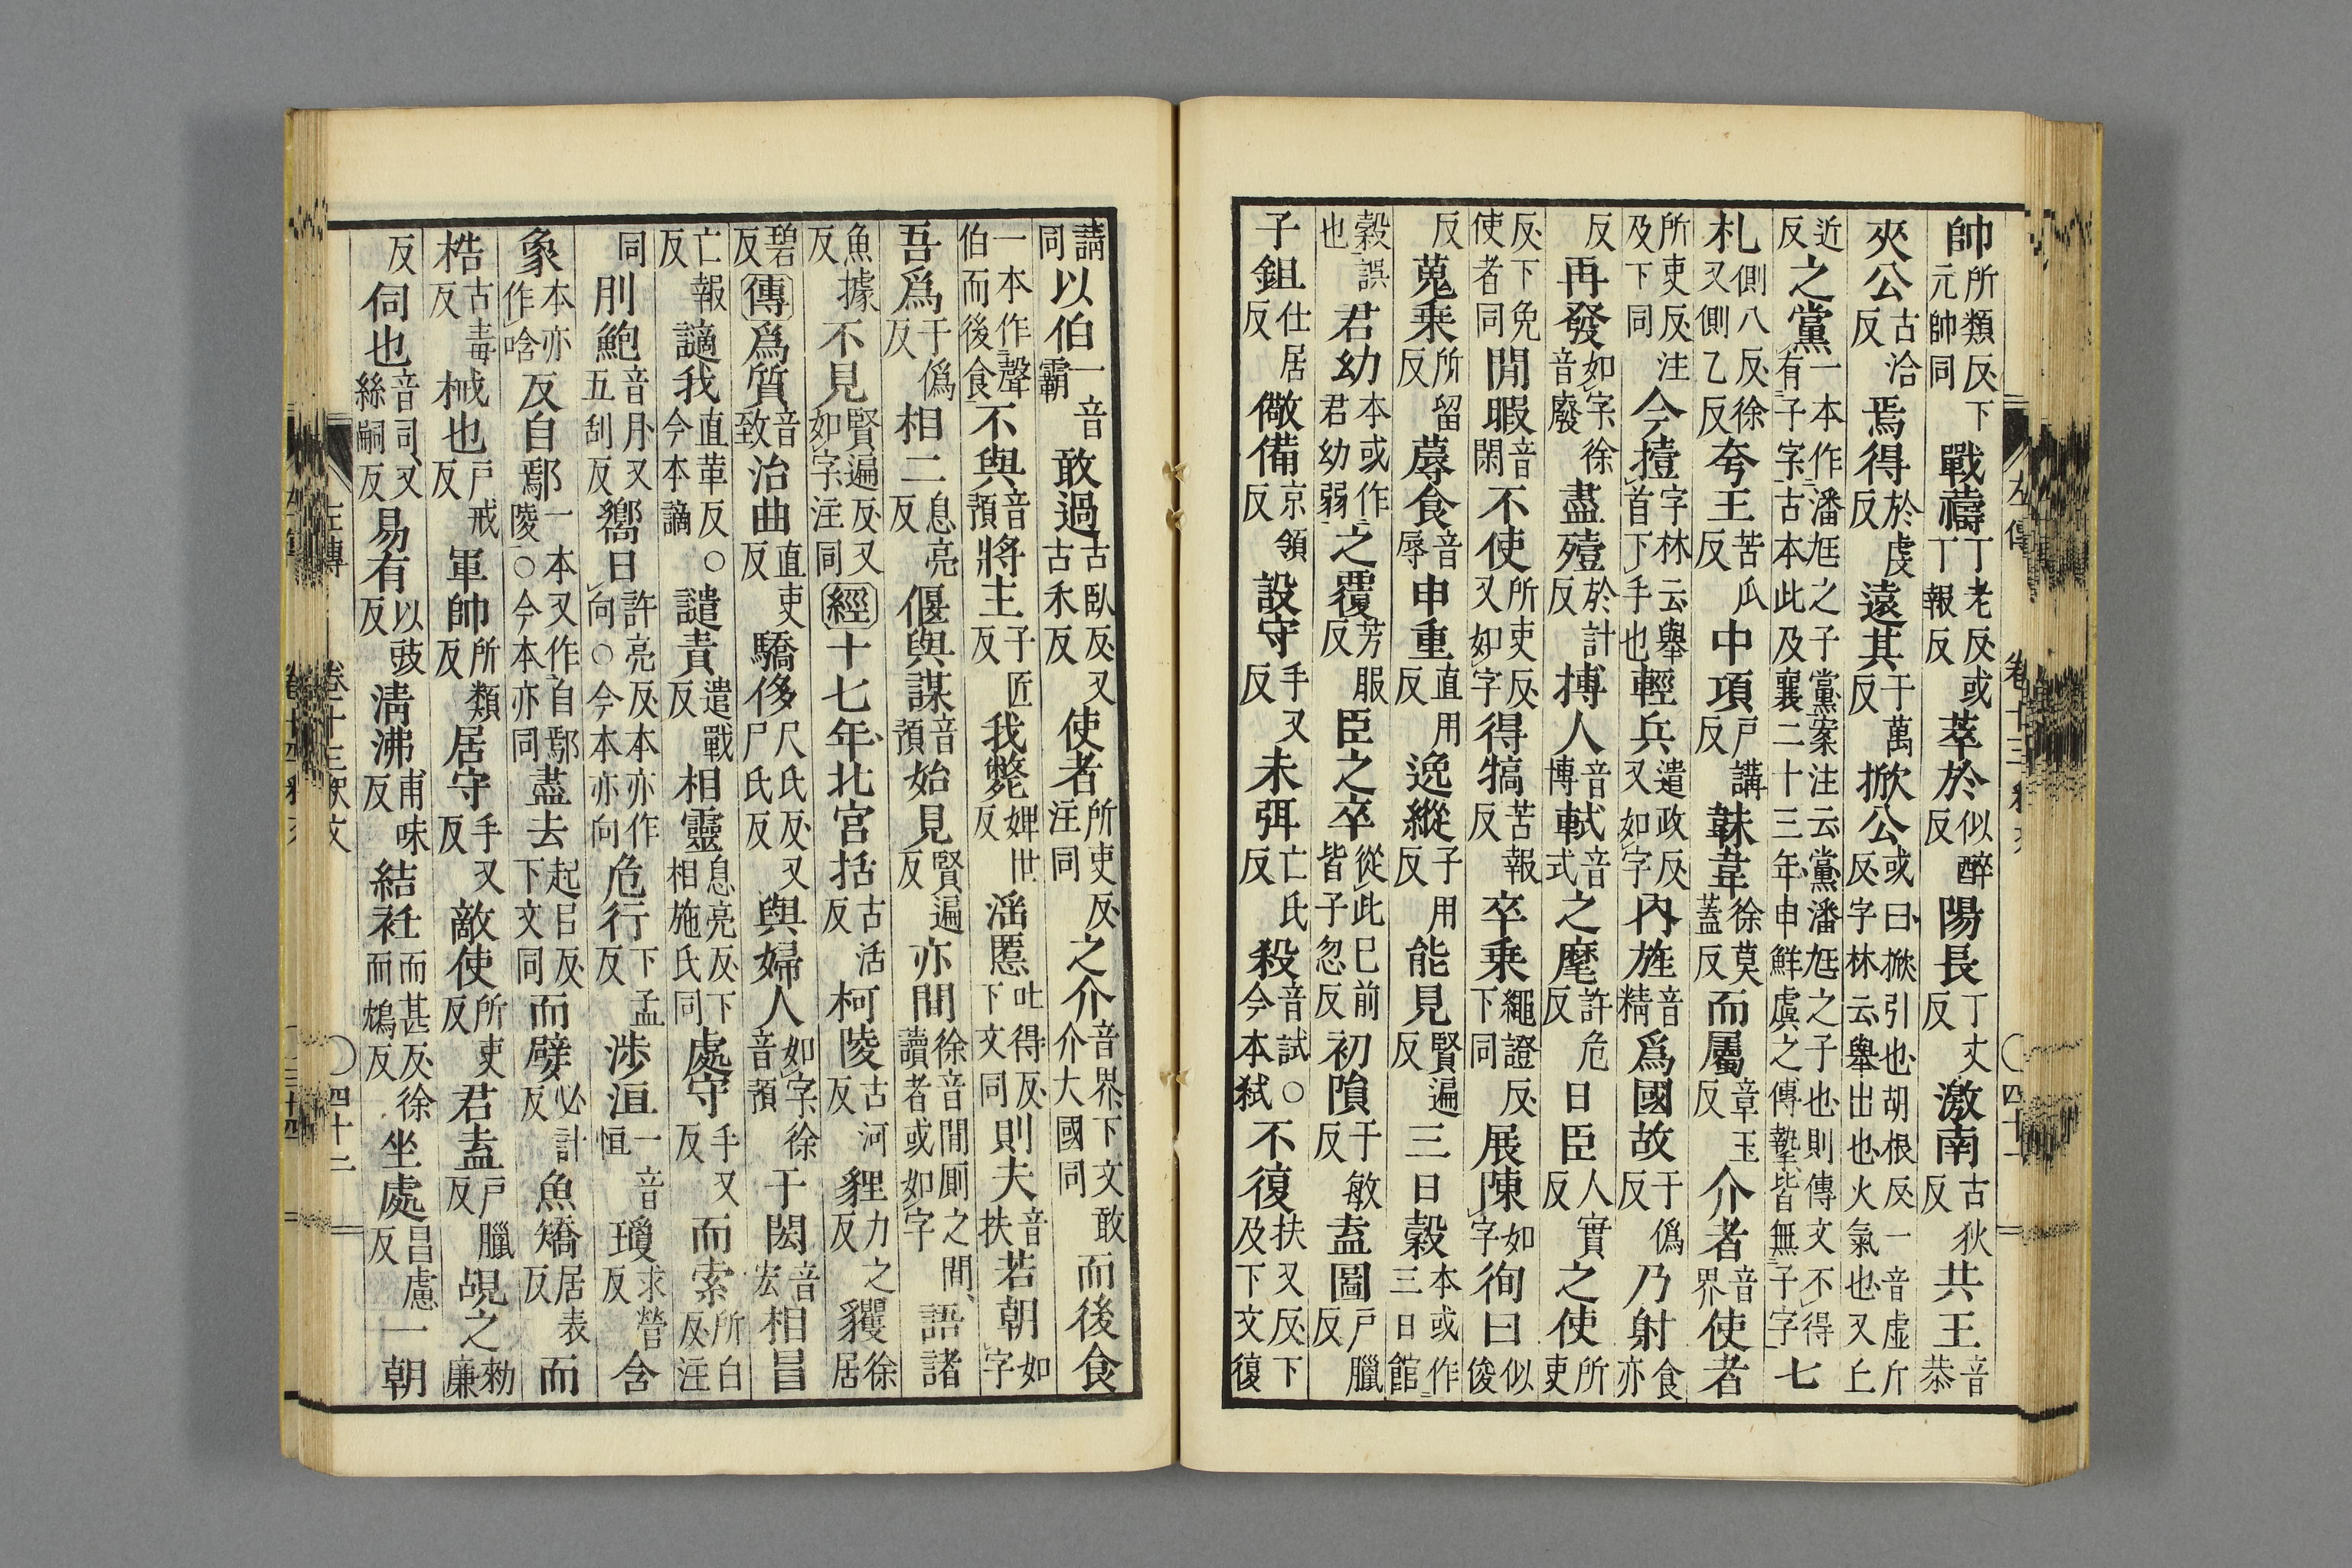 帥所類反下元帥同戰禱丁老反或丁報反萃於似醉反陽長丁丈反激南古狄反共王音恭
夾公古洽反焉得於虔反遠其于萬反掀公或曰掀引也胡根反一音虛斤反字林云舉出也火氣也又丘
近反之黨一本作潘尫之子黨案注云黨潘尫之子也則傳文不得有子字古本此及襄二十三年申鮮虞之傳摯皆無子字七
札側八反徐又側乙反夸王苦瓜反中項戶講反韎韋徐莫蓋反而屬章玉反介者音界使者
所吏反注及下同今撎字林云舉首下手也輕兵遣政反又如字內旌音精爲國故于僞反乃射食亦
反再發如字徐音廢盡殪於計反搏人音博軾音式之麾許危反日臣人實反之使所吏
反下免使者同閒暇音閑不使所吏反又如字得犒苦報反卒乘繩證反下同展陳如字徇曰似俊
反蒐乘所留反蓐食音辱申重直用反逸縱子用反能見賢遍反三日穀本或作三日館
穀誤也君幼本或作君幼弱之覆芳服反臣之卒從此巳前皆子忽反初隕于敏反盍圖戶臘反
子鉏仕居反儆備京領反設守手又反未弭亡氏反殺音試○今本弒不復扶又反下及下文復
左傳 卷十三釋文 ○四十一
請同以伯一音霸敢過古臥反又古禾反使者所吏反注同之介音界下文敢介大國同而後食
一本作聲伯而後食不與音預將主子匠反我斃婢世反淫慝吐得反下文同則夫音扶若朝如字
吾爲于僞反相二息亮反偃與謀音預始見賢遍反亦間徐音閒廁之間讀者或如字語諸
魚據反不見賢遍反又如字注同經十七年北宮括古活反柯陵古河反貍力之反貜徐居
碧反傳爲質音致治曲直吏反驕侈尺氏反又尸氏反與婦人如字徐音預于閎音宏相昌
亡報反讁我直革反○今本謫譴責遣戰反相靈息亮反下相施氏同處守手又反而索所白反注
同刖鮑音月又五刮反嚮日許亮反本亦作向○今本亦向危行下孟反涉洹一音恒瓊求營反含
象本亦作唅反自鄢一本又作自鄢陵○今本亦同盡去起呂反下文同而嬖必計反魚矯居表反而
梏古毒反械也戶戒反軍帥所類反居守手又反敵使所吏反君盍戶臘反覘之勑廉
反伺也音司又絲嗣反易有以豉反淸沸甫味反結衽而甚反徐而鴆反坐處昌慮反一朝
左傳 卷十三釋文 ○四十二